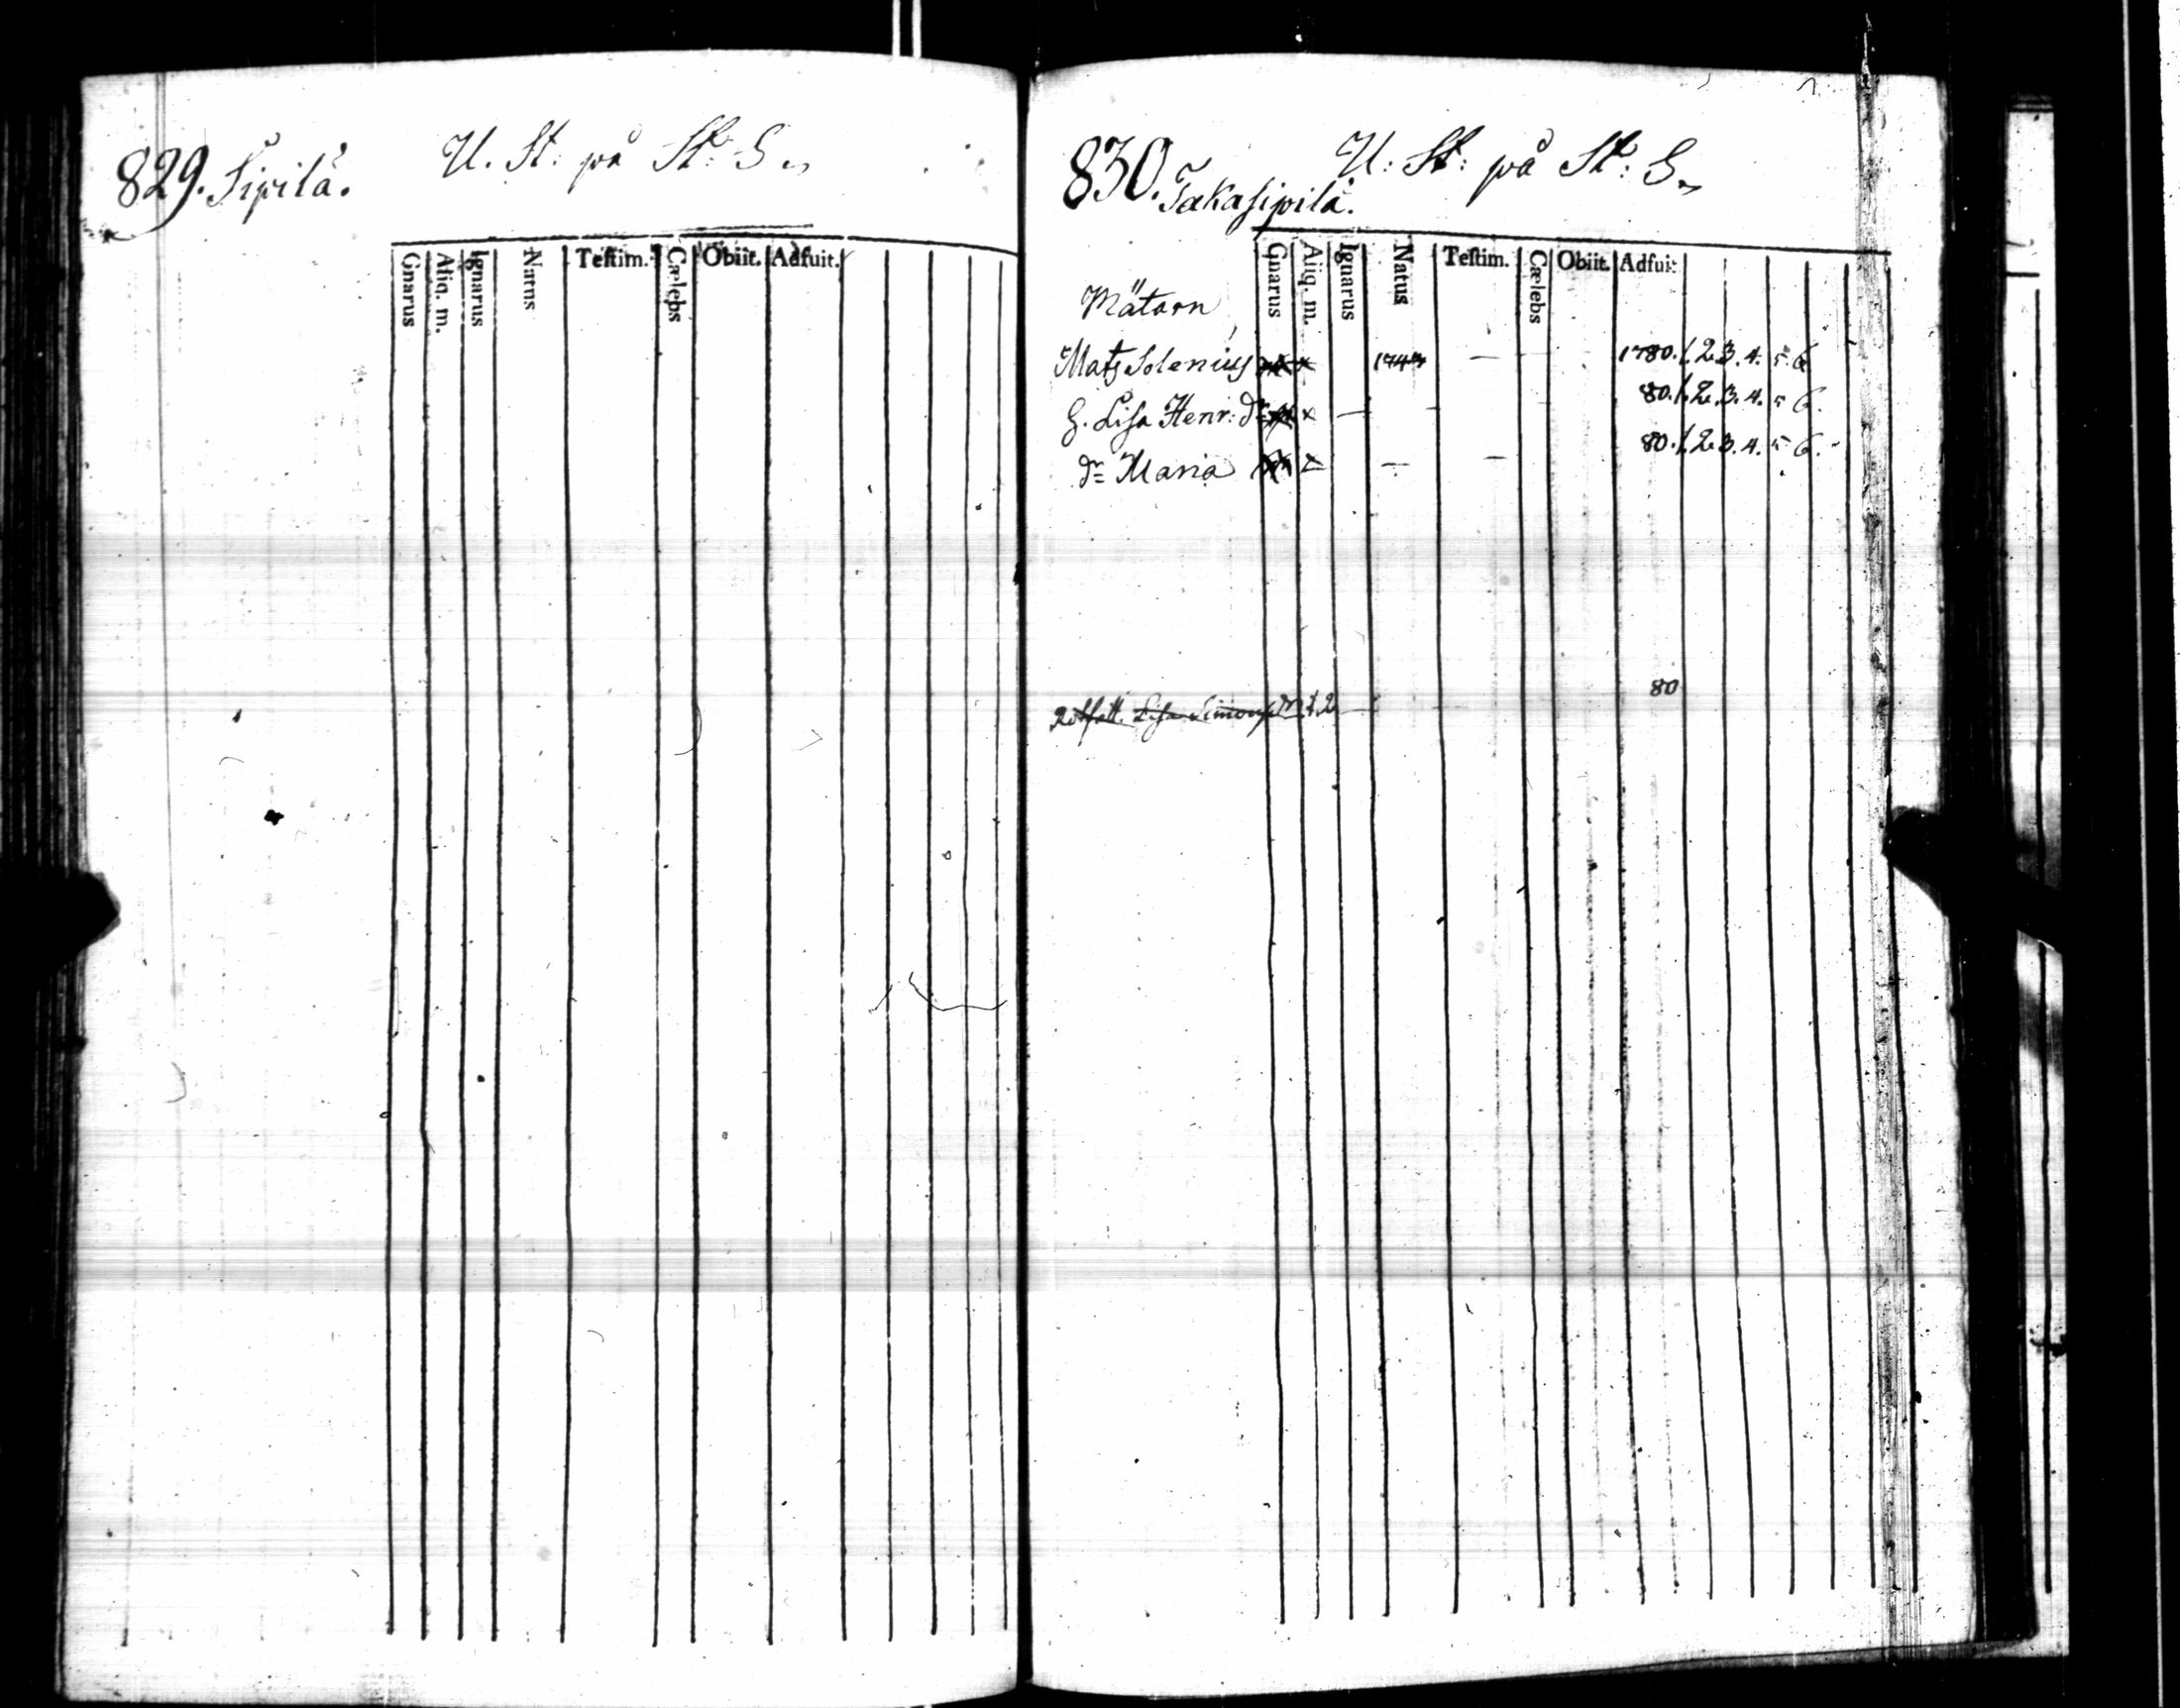 829. Sipilä. U. St: på St: G.
Gnarus Aliq. m. Ignarus Natus Teſtim. Cælebs Obiit. Adfuit.
830. Takasipilä. U: St: på St: G.
Gnarus Aliq. m. Ignarus Natus Teſtim. Cælebs Obiit. Adfuit
Mätarn
Mats Solenius 1780. 1. 2. 3. 4. 5. 6
H. Lisa Henr: dr 80. 1. 2. 3. 4. 5 6.
dr Maria 80. 1. 2. 3. 4. 5 6.
Lisa Simonsdr 1.2 80